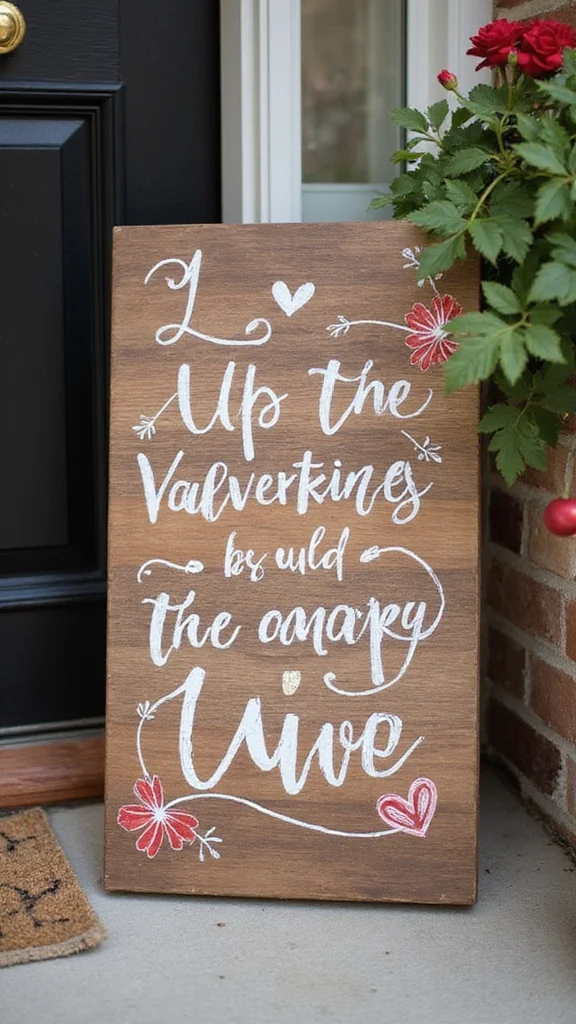 L
Up the
Valverkines
bs uuld
the onarpy
Uuve